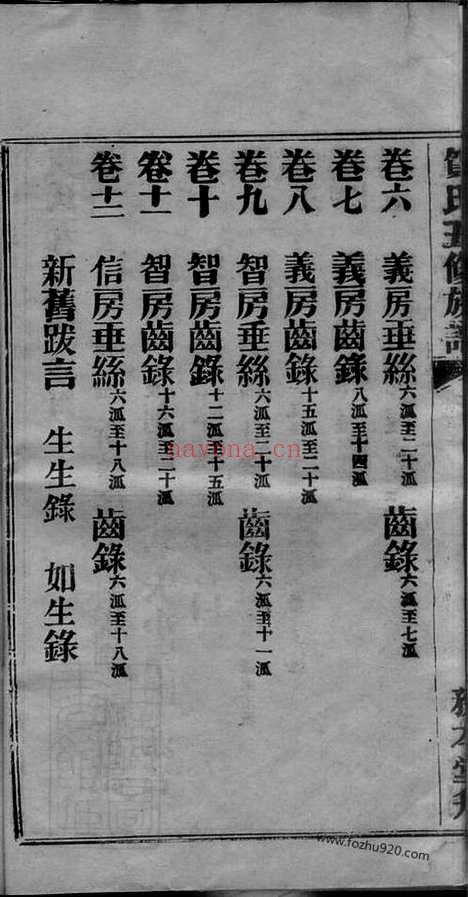 氏五修族譜
卷六　義房垂絲六派至二十派　齒錄六派至七派
卷七　義房齒錄八派至十四派
卷八　義房齒錄十五派至二十派
卷九　智房垂絲六派至二十派　齒錄六派至十一派
卷十　智房齒錄十二派至十五派
卷十一　智房齒錄十六派至二十派
卷十二　信房垂絲六派至十八派　齒錄六派至十八派
新舊跋言　生生錄　如生錄
nayona.cn
www.fozhu920.com